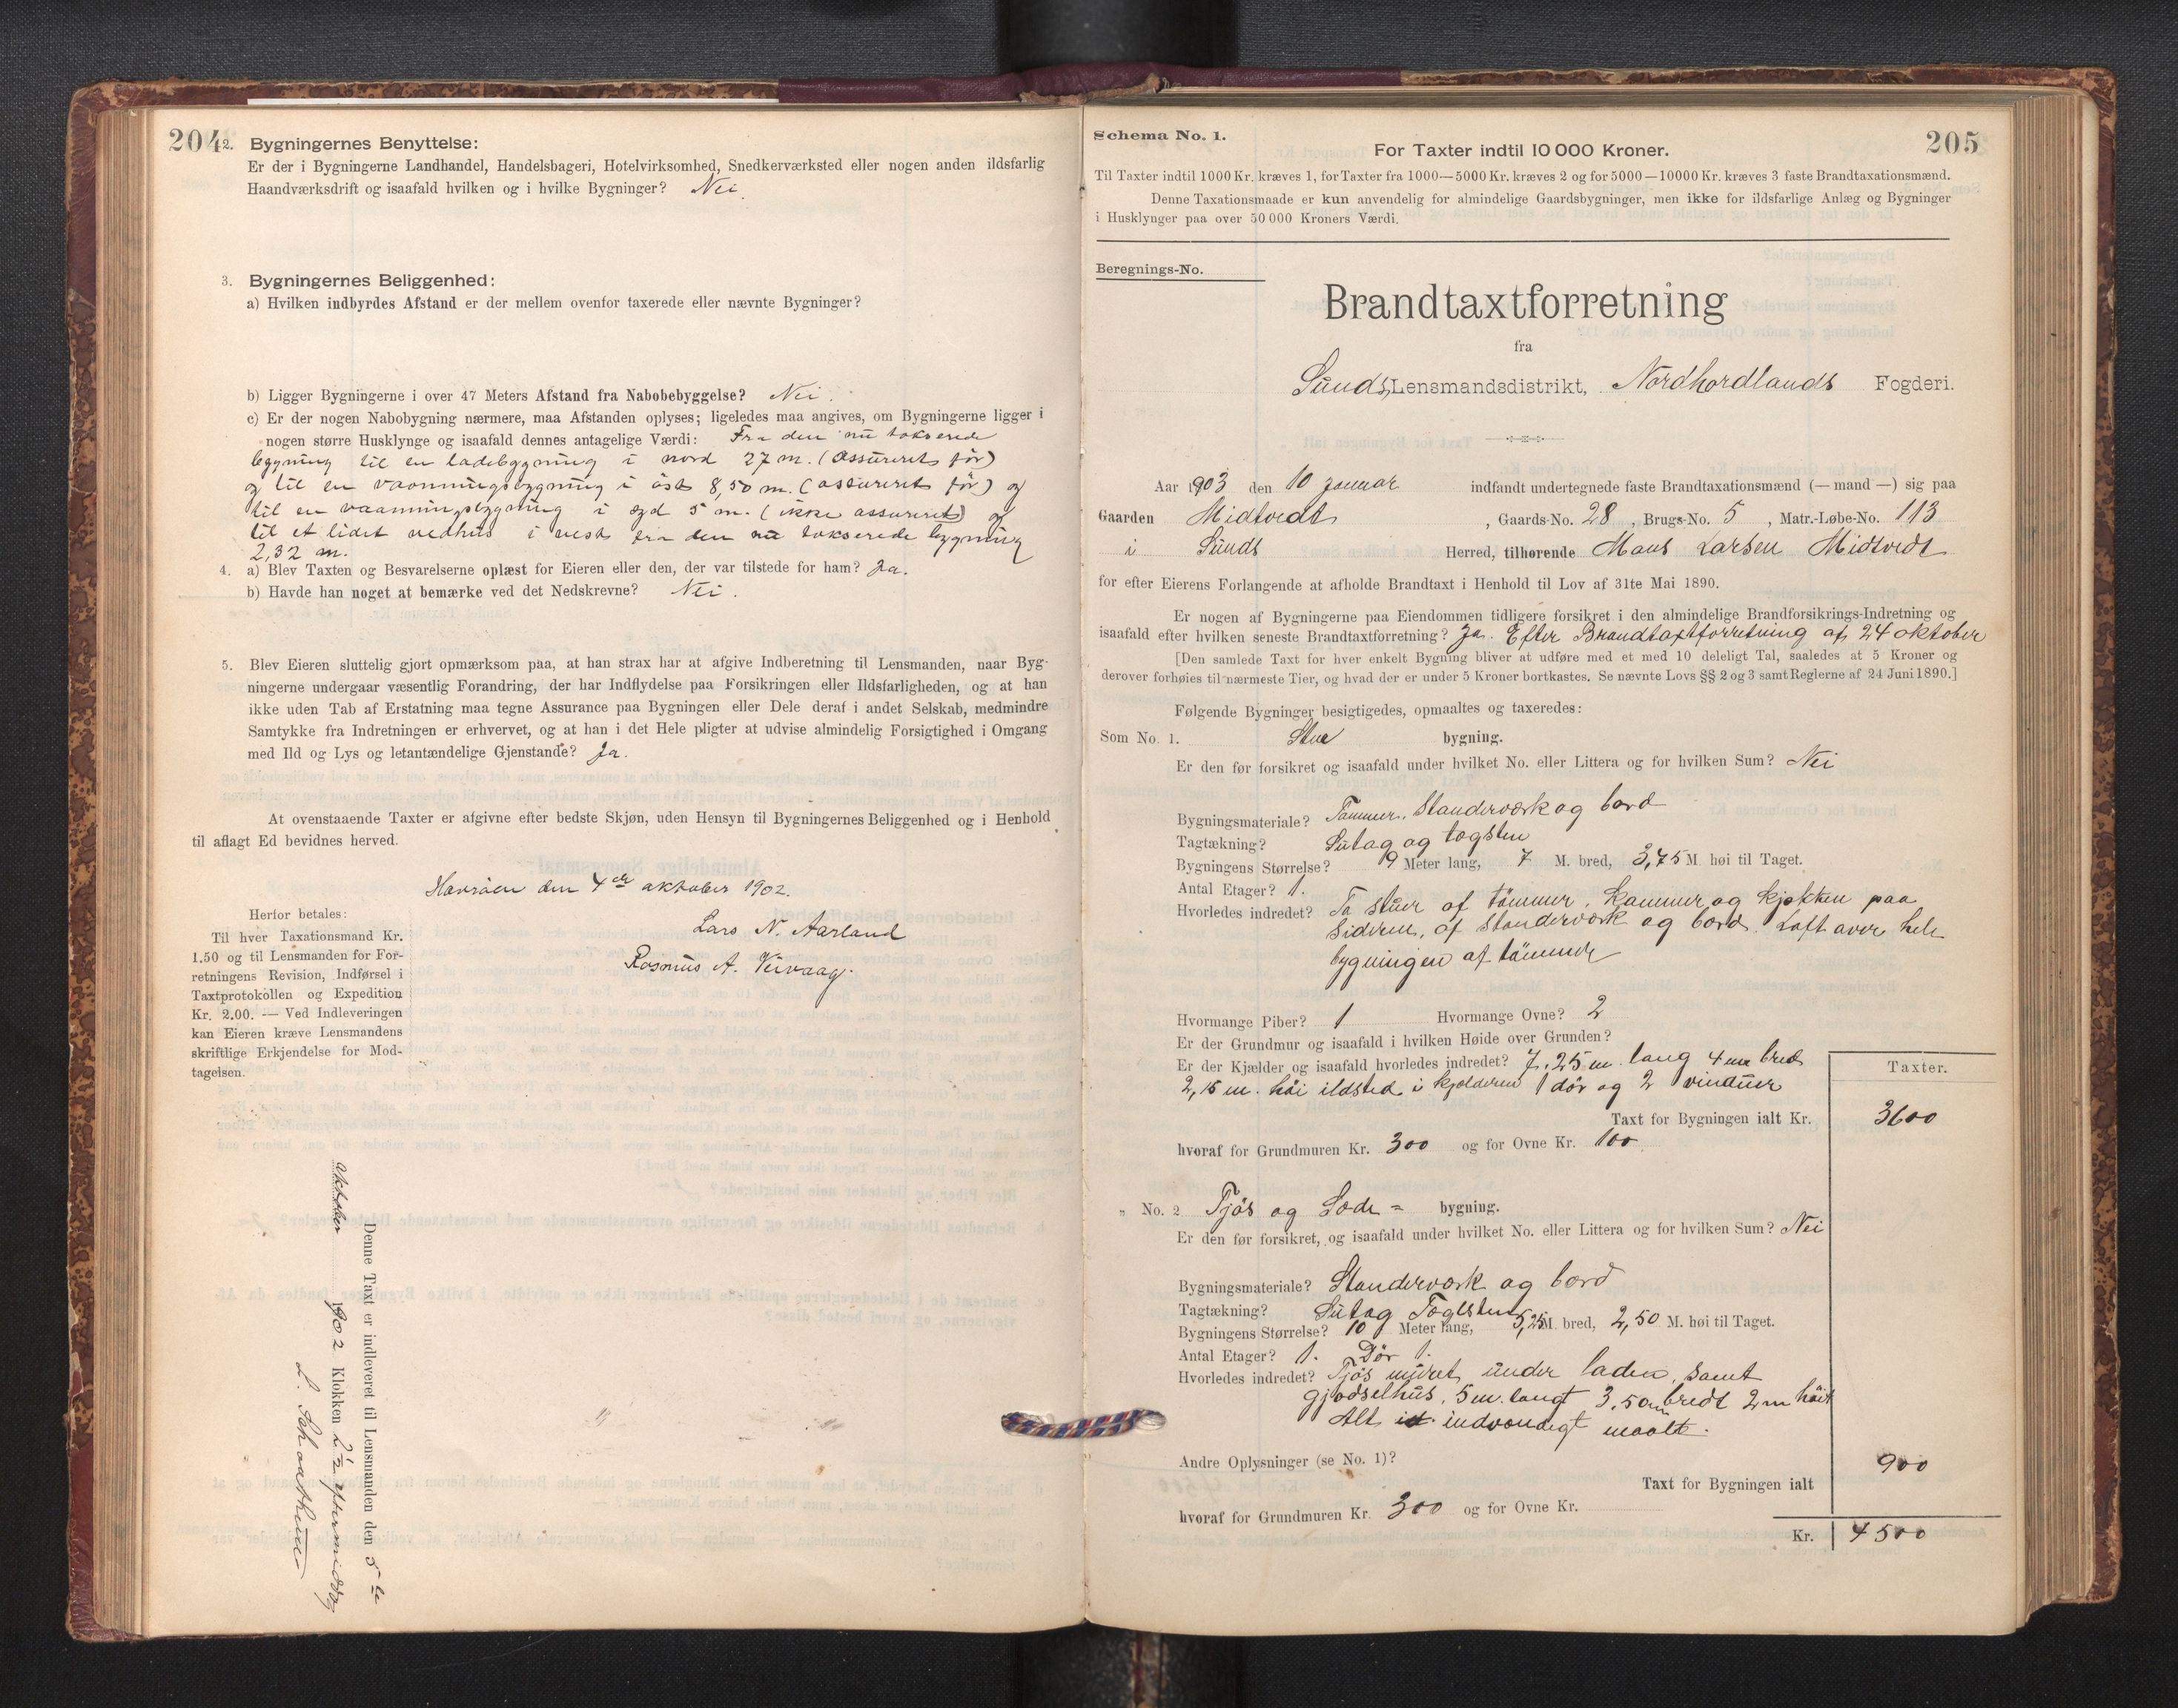 204
2. Bygningernes Benyttelse:
Er der i Bygningerne Landhandel, Handelsbageri, Hotelvirksomhed, Snedkerværksted eller nogen anden ildsfarlig
Haandværksdrift og isaafald hvilken og i hvilke Bygninger? Nei.
3. Bygningernes Beliggenhed:
a) Hvilken indbyrdes Afstand er der mellem ovenfor taxerede eller nævnte Bygninger?
b) Ligger Bygningerne i over 47 Meters Afstand fra Nabobebyggelse? Nei.
c) Er der nogen Nabobygning nærmere, maa Afstanden oplyses; ligeledes maa angives, om Bygningerne ligger i
nogen større Husklynge og isaafald dennes antagelige Værdi: Fra den nu takserede
bygning til en ladebygning i nord 27 m. (assureret før)
og til en vaaningsbygning i øst 8,50 m. (assureret før) og
til en vaaningsbygning i syd 5 m. (ikke assureret) og
til et lidet vedhus i vest fra den nu takserede bygning
2,32 m.
4. a) Blev Taxten og Besvarelserne oplæst for Eieren eller den, der var tilstede for ham? Ja.
b) Havde han noget at bemærke ved det Nedskrevne? Nei.
5. Blev Eieren sluttelig gjort opmærksom paa, at han strax har at afgive Indberetning til Lensmanden, naar Byg-
ningerne undergaar væsentlig Forandring, der har Indflydelse paa Forsikringen eller Ildsfarligheden, og at han
ikke uden Tab af Erstatning maa tegne Assurance paa Bygningen eller Dele deraf i andet Selskab, medmindre
Samtykke fra Indretningen er erhvervet, og at han i det Hele pligter at udvise almindelig Forsigtighed i Omgang
med Ild og Lys og letantændelige Gjenstande? Ja.
At ovenstaaende Taxter er afgivne efter bedste Skjøn, uden Hensyn til Bygningernes Beliggenhed og i Henhold
til aflagt Ed bevidnes herved.
den 4de oktober 1902.
Lars N. Aarland
Rasmus A.
Herfor betales:
Til hver Taxationsmand Kr.
1.50 og til Lensmanden for For-
retningens Revision, Indførsel i
Taxtprotokollen og Expedition
Kr. 2.00. — Ved Indleveringen
kan Eieren kræve Lensmandens
skriftlige Erkjendelse for Mod-
tagelsen.
Denne Taxt er indleveret til Lensmanden den 5te
oktober 1902 Klokken 2 1/2 eftermiddag
205
Schema No. 1.
For Taxter indtil 10 000 Kroner.
Til Taxter indtil 1000 Kr. kræves 1, for Taxter fra 1000—5000 Kr. kræves 2 og for 5000—10000 Kr. kræves 3 faste Brandtaxationsmænd.
Denne Taxationsmaade er kun anvendelig for almindelige Gaardsbygninger, men ikke for ildsfarlige Anlæg og Bygninger
i Husklynger paa over 50 000 Kroners Værdi.
Beregnings-No.
Brandtaxtforretning
fra
Sunds Lensmandsdistrikt, Nordhordlands Fogderi.
Aar 1903 den 10 januar indfandt undertegnede faste Brandtaxationsmænd (— mand —) sig paa
Gaarden Midtvedt, Gaards-No. 28, Brugs-No. 5, Matr.-Løbe-No. 113
i Sunds Herred, tilhørende Mons Larsen Midtvedt
for efter Eierens Forlangende at afholde Brandtaxt i Henhold til Lov af 31te Mai 1890.
Er nogen af Bygningerne paa Eiendommen tidligere forsikret i den almindelige Brandforsikrings-Indretning og
isaafald efter hvilken seneste Brandtaxtforretning? Ja. Efter Brandtaxtforretning af 24 oktober
[Den samlede Taxt for hver enkelt Bygning bliver at udføre med et med 10 deleligt Tal, saaledes at 5 Kroner og
derover forhøies til nærmeste Tier, og hvad der er under 5 Kroner bortkastes. Se nævnte Lovs §§ 2 og 3 samt Reglerne af 24 Juni 1890.]
Følgende Bygninger besigtigedes, opmaaltes og taxeredes:
Som No. 1. Stue bygning.
Er den før forsikret og isaafald under hvilket No. eller Littera og for hvilken Sum? Nei
Bygningsmateriale? Tømmer, Standerværk og bord
Tagtækning? Sutag og tagsten
Bygningens Størrelse? 9 Meter lang, 7 M. bred, 3,75 M. høi til Taget.
Antal Etager? 1.
Hvorledes indredet? To stuer af tømmer, kammer og kjøkken paa
Siderne, af standerværk og bord. Loft over hele
bygningen af tømmer
Hvormange Piber? 1 Hvormange Ovne? 2
Er der Grundmur og isaafald i hvilken Høide over Grunden?
Er der Kjælder og isaafald hvorledes indredet? 7,25 m. lang 4 m bred
2,15 m. høi ildsted i kjælderen 1 dør og 2 vinduer
Taxter.
Taxt for Bygningen ialt Kr. 3600
hvoraf for Grundmuren Kr. 300 og for Ovne Kr. 100
„ No. 2 Fjøs og Lade = bygning.
Er den før forsikret, og isaafald under hvilket No. eller Littera og for hvilken Sum? Nei
Bygningsmateriale? Standerværk og bord
Tagtækning? Sutag Tagsten
Bygningens Størrelse? 10 Meter lang, 5,25 M. bred, 2,50 M. høi til Taget.
Antal Etager? 1. Dør 1.
Hvorledes indredet? Fjøs muret under laden, samt
gjødselhus, 5 m. langt 3,50 m bredt 2 m høit
Alt indvendigt maalt.
Andre Oplysninger (se No. 1)?
Taxt for Bygningen ialt 900
hvoraf for Grundmuren Kr. 300 og for Ovne Kr.
Kr. 4500